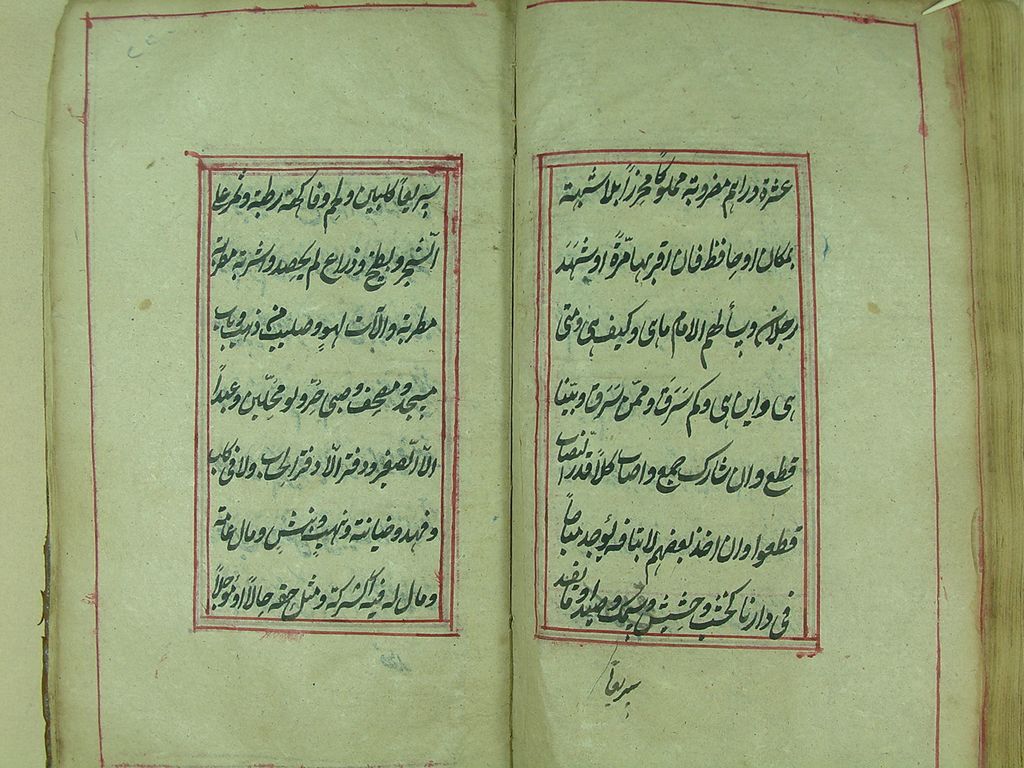 عشرة دراهم مضروبة مملوكاً محرزاً بلا شبهة
بمكان او حافظ فان اقر بها مرّةً او شَهَدَ
رجلان وسألهم الامام ماهى وكيف هى ومتى
هى واين هى وكم سَرَقَ وممّن سَرَقَ وبيّنا
قطع وان شارك جمع واصاب كلاً قدر النصاب
قطعوا وان اخذ بعضهم لا بتافه يُوجد مباحاً
فى دارنا كخشب وحشيش وسمك وصيد او ما يفسد
سريعاً
سريعاً كلبن ولحم وفاكهة رطبة وثمر على
الشجر وبطيخ وزراع لم يحصد واشربة مطربة
مطربة والآت لهوٍ وصليب من ذهب وباب
مسجد ومصحف وصبى حرّ ولو محلّين وعبداً
الاّ الصغير ودفتر الاّ دفتر الحساب ولا فى كلب
وفهد وخيانة ونهب ونبش ومال عامة
ومال له فيه شركة ومثل حقه حالاً او مؤجلاً